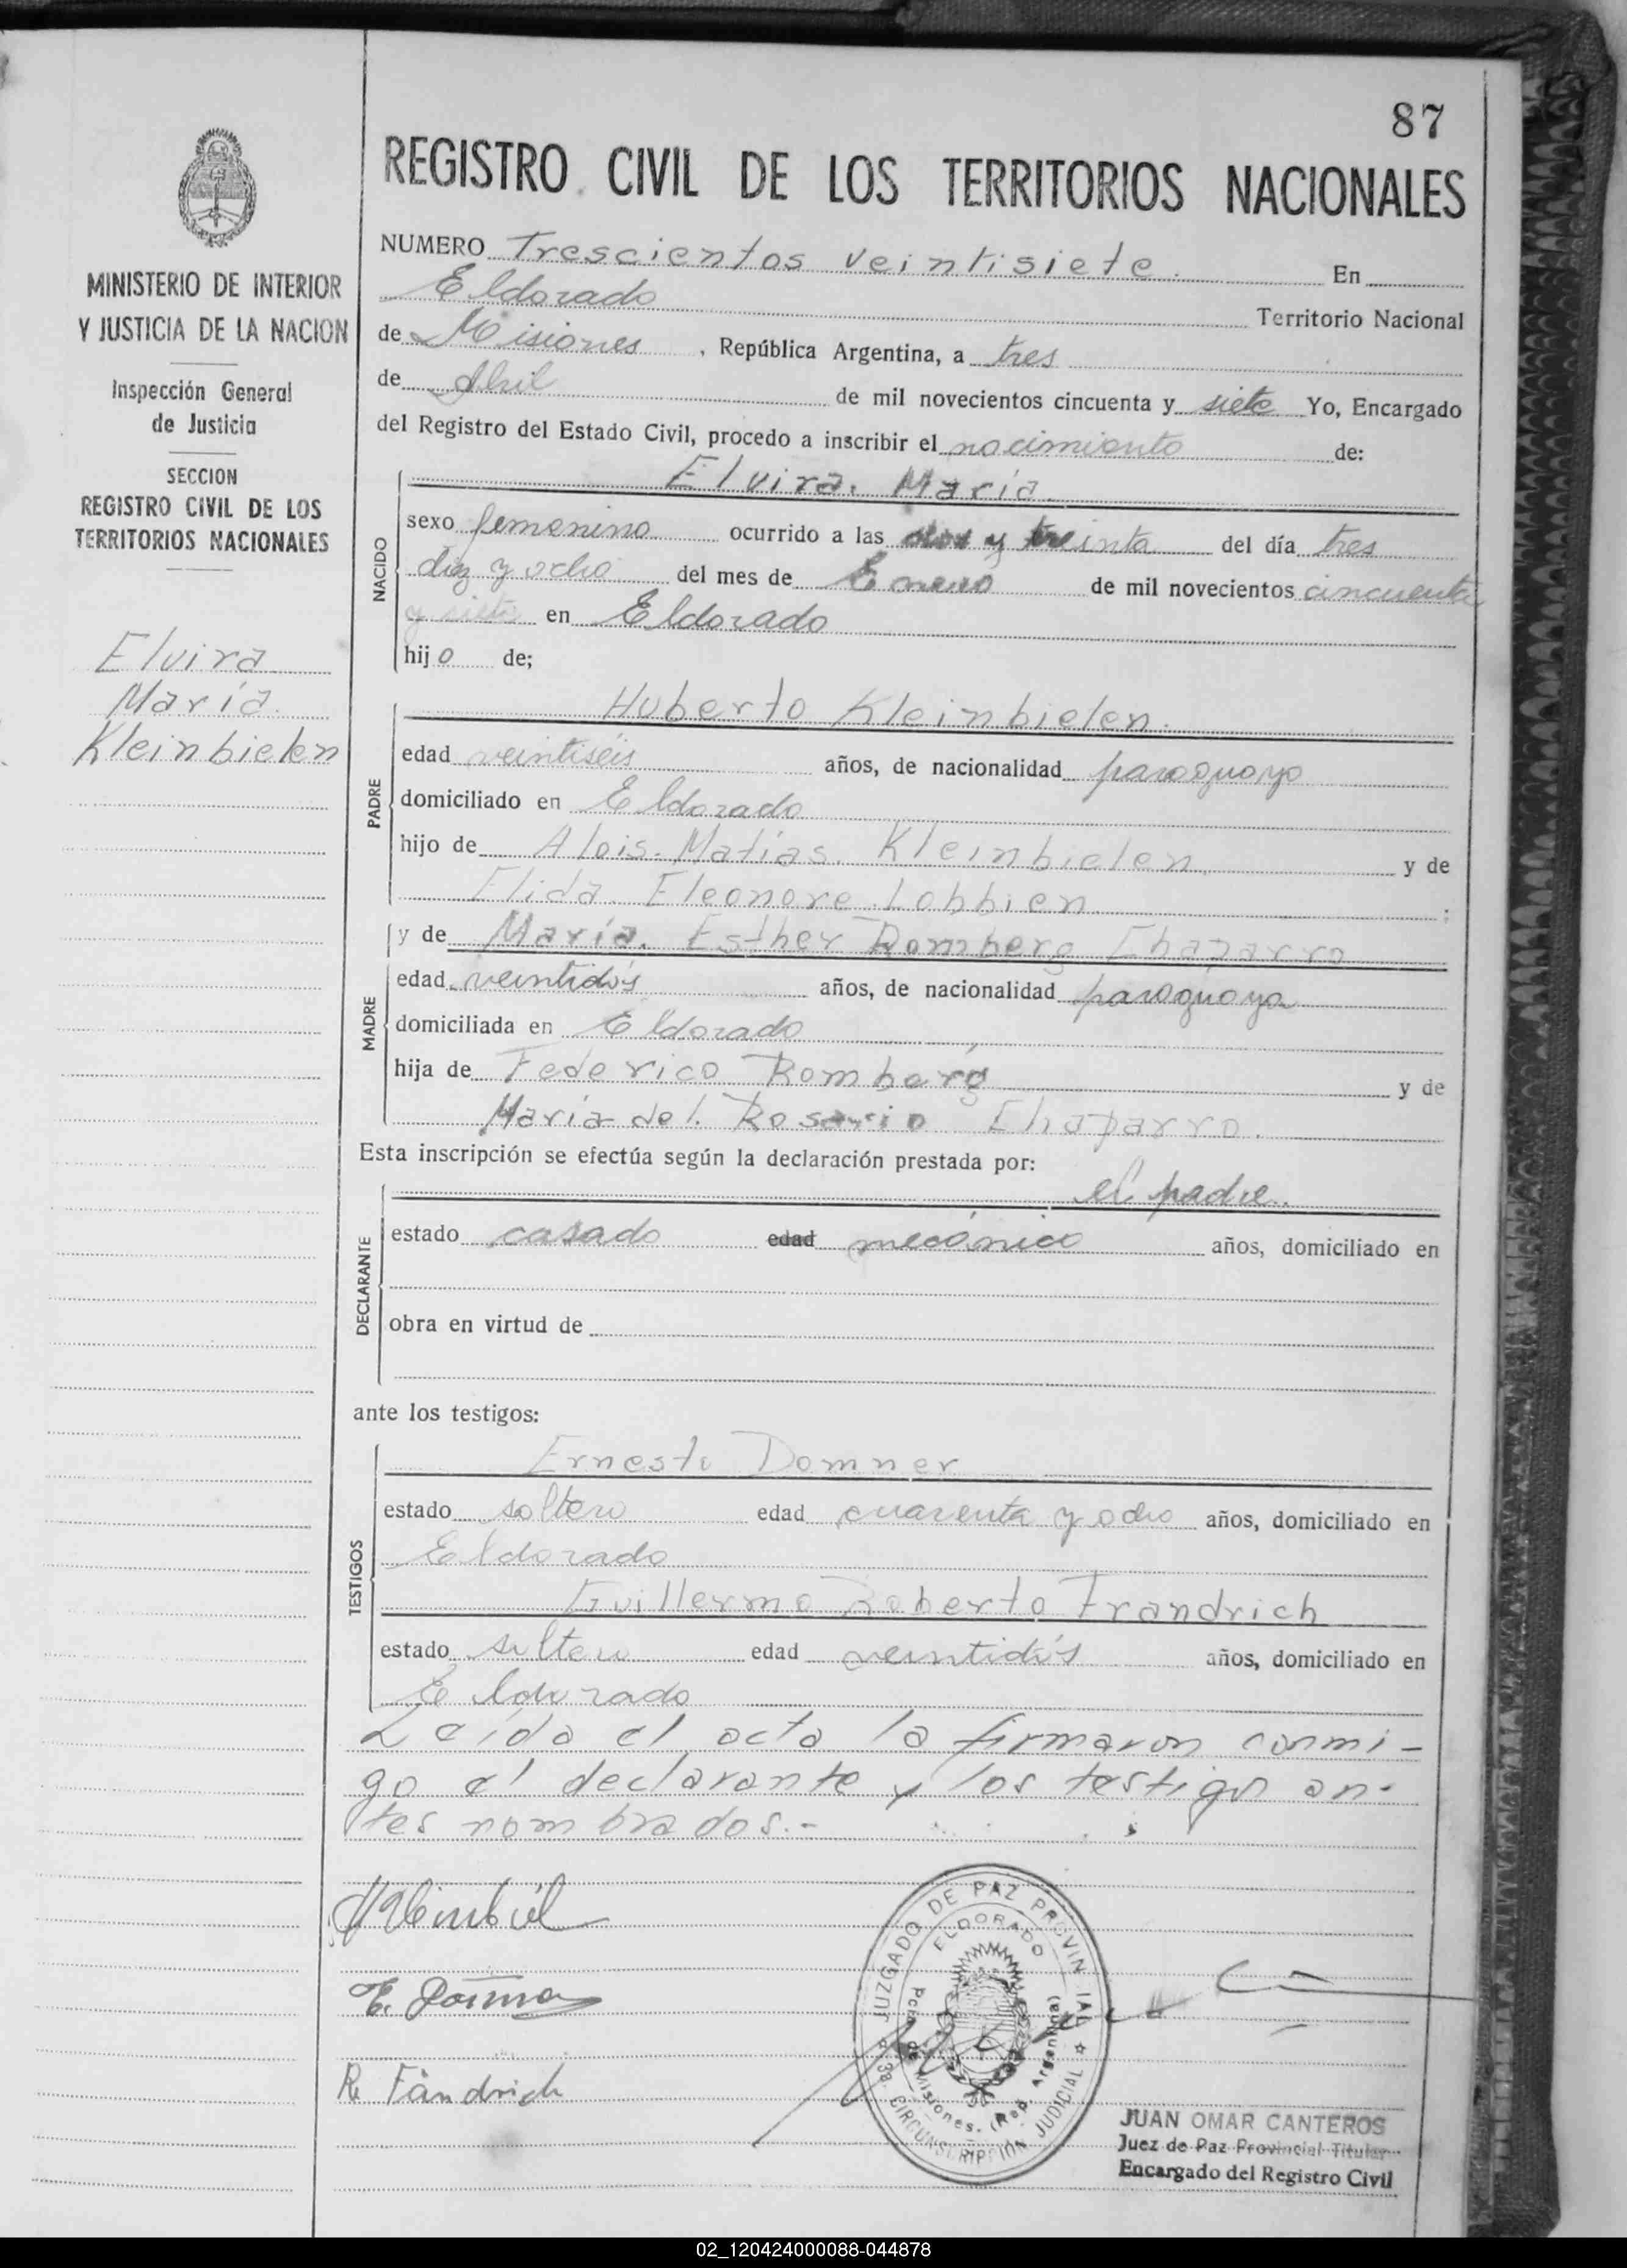 87
REGISTRO CIVIL DE LOS TERRITORIOS NACIONALES
MINISTERIO DE INTERIOR
Y JUSTICIA DE LA NACION
Inspección General
de Justicia
SECCION
REGISTRO CIVIL DE LOS
TERRITORIOS NACIONALES
Elvira
María
Kleinbielen
NUMERO Trescientos veintisiete. En
Eldorado Territorio Nacional
de Misiones, República Argentina, a tres
de Abril de mil novecientos cincuenta y siete Yo, Encargado
del Registro del Estado Civil, procedo a inscribir el nacimiento de:
NACIDO
Elvira. María.
sexo femenino ocurrido a las y treinta del día tres
diez y ocho del mes de Enero de mil novecientos cincuenta
y siete en Eldorado
hijo de;
PADRE
Huberto Kleinbielen.
edad veintiséis años, de nacionalidad paraguayo
domiciliado en Eldorado
hijo de Alois. Matías. Kleinbielen. y de
Elida. Eleonore. Lobbien. ;
y de María. Esther Romberg Chaparro
MADRE
edad veintidós años, de nacionalidad paraguaya
domiciliada en Eldorado
hija de Federico Romberg y de
María del. Rosario Chaparro.
Esta inscripción se efectúa según la declaración prestada por:
DECLARANTE
el padre.
estado casado edad mecánico años, domiciliado en
obra en virtud de
ante los testigos:
TESTIGOS
Ernesto Domner
estado soltero edad cuarenta y ocho años, domiciliado en
Eldorado
Guillermo Roberto Frandrich
estado soltero edad veintidós años, domiciliado en
Eldorado
Leída el acta la firmaron conmi-
go el declarante y los testigos an-
tes nombrados.-
R. Fandrich
JUZGADO DE PAZ PROVINCIAL
ELDORADO
Pcia. de Misiones. (Rep. Argentina)
3a. CIRCUNSCRIPCIÓN JUDICIAL
JUAN OMAR CANTEROS
Juez de Paz Provincial Titular
Encargado del Registro Civil
02_120424000088-044878